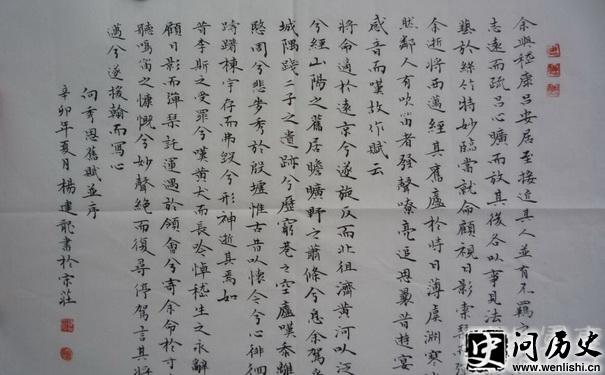 余與嵇康吕安居至接近其人並有不羈之
志遠而疏吕心曠而放其後各以事見法
藝於絲竹特妙臨當就命顧視日影索琴
余逝將西邁經其舊廬於時日薄虞淵寒冰
然鄰人有吹笛者發聲嘹亮追思曩昔遊宴
感音而嘆故作賦云
將命適於遠京兮遂旋反而北徂濟黄河以泛
兮經山陽之舊居瞻曠野之蕭條兮息余駕乎
城隅踐二子之遺跡兮歷窮巷之空廬嘆黍離
愍周兮悲麥秀於殷墟惟古昔以懷今兮心徘徊
躊躇棟宇存而弗毀兮形神逝其焉如
昔李斯之受罪兮嘆黄犬而長吟悼嵇生之永辭
顧日影而彈琴託運遇於領會兮寄余命於寸
聽鳴笛之慷慨兮妙聲絶而復尋停駕言其將
邁兮遂援翰而寫心
向秀思舊賦並序
辛卯年夏月楊建龍書於京莊
史问历史
www.wenlishi.cn